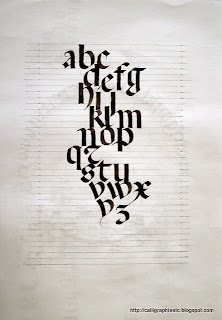 abc
defg
hij
klm
nop
qr
stu
vwx
yz
http://calligraphissic.blogspot.com